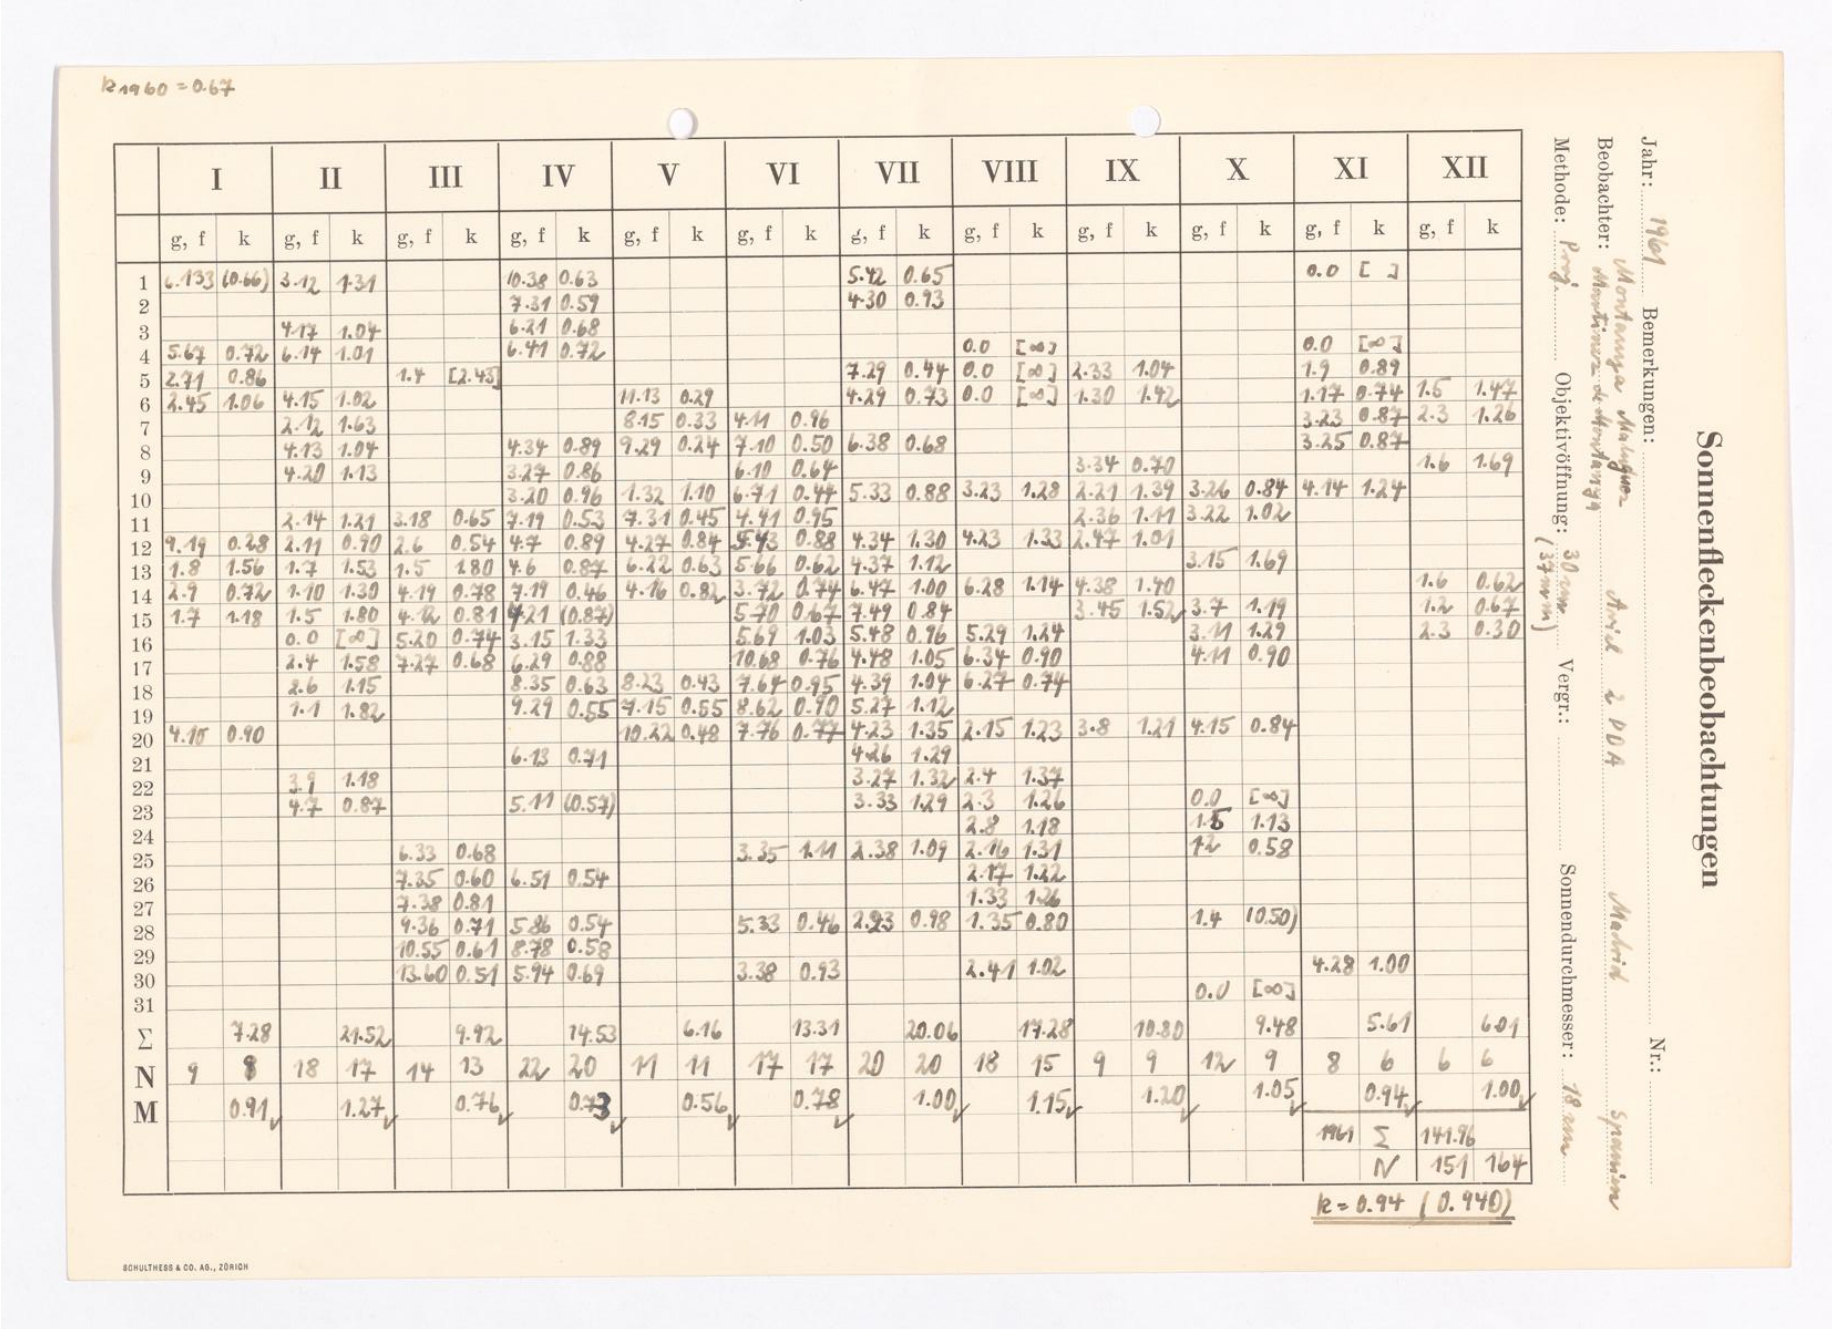 k1960 = 0.67
Sonnenfleckenbeobachtungen
Jahr: 1961 Bemerkungen: Nr.:
Beobachter: Montanya Madrid Spanien
Methode: Proj. Objektivöffnung: 30 mm (37mm) Vergr.: Sonnendurchmesser: 18 cm
I II III IV V VI VII VIII IX X XI XII
g, f k g, f k g, f k g, f k g, f k g, f k g, f k g, f k g, f k g, f k g, f k g, f k
1 6.133 (0.66) 3.12 1.31 10.38 0.63 5.42 0.65 0.0 [ ]
2 7.31 0.59 4.30 0.93
3 4.17 1.04 6.21 0.68
4 5.67 0.72 6.14 1.01 6.41 0.72 0.0 [∞] 0.0 [∞]
5 2.71 0.86 1.4 [2.43] 7.29 0.44 0.0 [∞] 2.33 1.04 1.9 0.89
6 2.45 1.06 4.15 1.02 11.13 0.29 4.29 0.73 0.0 [∞] 1.30 1.42 1.17 0.74 1.5 1.47
7 2.12 1.63 8.15 0.33 4.11 0.96 3.23 0.87 2.3 1.26
8 4.13 1.04 4.34 0.89 9.29 0.24 7.10 0.50 6.38 0.68 3.25 0.87
9 4.20 1.13 3.27 0.86 6.10 0.64 3.34 0.70 1.6 1.69
10 3.20 0.96 1.32 1.10 6.71 0.44 5.33 0.88 3.23 1.28 2.21 1.39 3.26 0.84 4.14 1.24
11 2.14 1.21 3.18 0.65 7.19 0.53 7.31 0.45 4.41 0.95 2.36 1.11 3.22 1.02
12 9.19 0.28 2.11 0.90 2.6 0.54 4.7 0.89 4.27 0.84 5.43 0.88 4.34 1.30 4.23 1.33 2.47 1.01
13 1.8 1.56 1.7 1.53 1.5 1.80 4.6 0.87 6.22 0.63 5.66 0.62 4.37 1.12 3.15 1.69
14 2.9 0.72 1.10 1.30 4.19 0.78 7.19 0.46 4.16 0.82 3.72 0.74 6.47 1.00 6.28 1.14 4.38 1.40 1.6 0.62
15 1.7 1.18 1.5 1.80 4.12 0.81 4.21 (0.87) 5.70 0.67 7.49 0.84 3.45 1.52 3.7 1.19 1.2 0.67
16 0.0 [∞] 5.20 0.74 3.15 1.33 5.69 1.03 5.48 0.96 5.29 1.24 3.11 1.29 2.3 0.30
17 2.4 1.58 7.27 0.68 6.29 0.88 10.68 0.76 4.48 1.05 6.34 0.90 4.11 0.90
18 2.6 1.15 8.35 0.63 8.23 0.43 7.64 0.95 4.39 1.04 6.27 0.74
19 1.1 1.82 9.29 0.55 7.15 0.55 8.62 0.90 5.27 1.12
20 4.10 0.90 10.22 0.48 7.76 0.77 4.23 1.35 2.15 1.23 3.8 1.21 4.15 0.84
21 6.13 0.71 4.26 1.29
22 3.9 1.18 3.27 1.32 2.4 1.37
23 4.7 0.87 5.11 (0.57) 3.33 1.29 2.3 1.26 0.0 [∞]
24 2.8 1.18 1.5 1.13
25 6.33 0.68 3.35 1.11 2.38 1.09 2.16 1.31 1.2 0.58
26 7.35 0.60 6.51 0.54 2.17 1.22
27 7.38 0.81 1.33 1.26
28 9.36 0.71 5.86 0.54 5.33 0.46 2.93 0.98 1.35 0.80 1.4 (0.50)
29 10.55 0.61 8.78 0.58
30 13.60 0.51 5.94 0.69 3.38 0.93 2.41 1.02 4.28 1.00
31 0.0 [∞]
Σ 7.28 21.52 9.92 14.53 6.16 13.31 20.06 17.28 10.80 9.48 5.61 6.01
N 9 8 18 17 14 13 22 20 11 11 17 17 20 20 18 15 9 9 12 9 8 6 6 6
M 0.91 1.27 0.76 0.73 0.56 0.78 1.00 1.15 1.20 1.05 0.94 1.00
1961 Σ 141.96
N 151 164
k = 0.94 (0.940)
SCHULTHESS & CO. AG., ZÜRICH